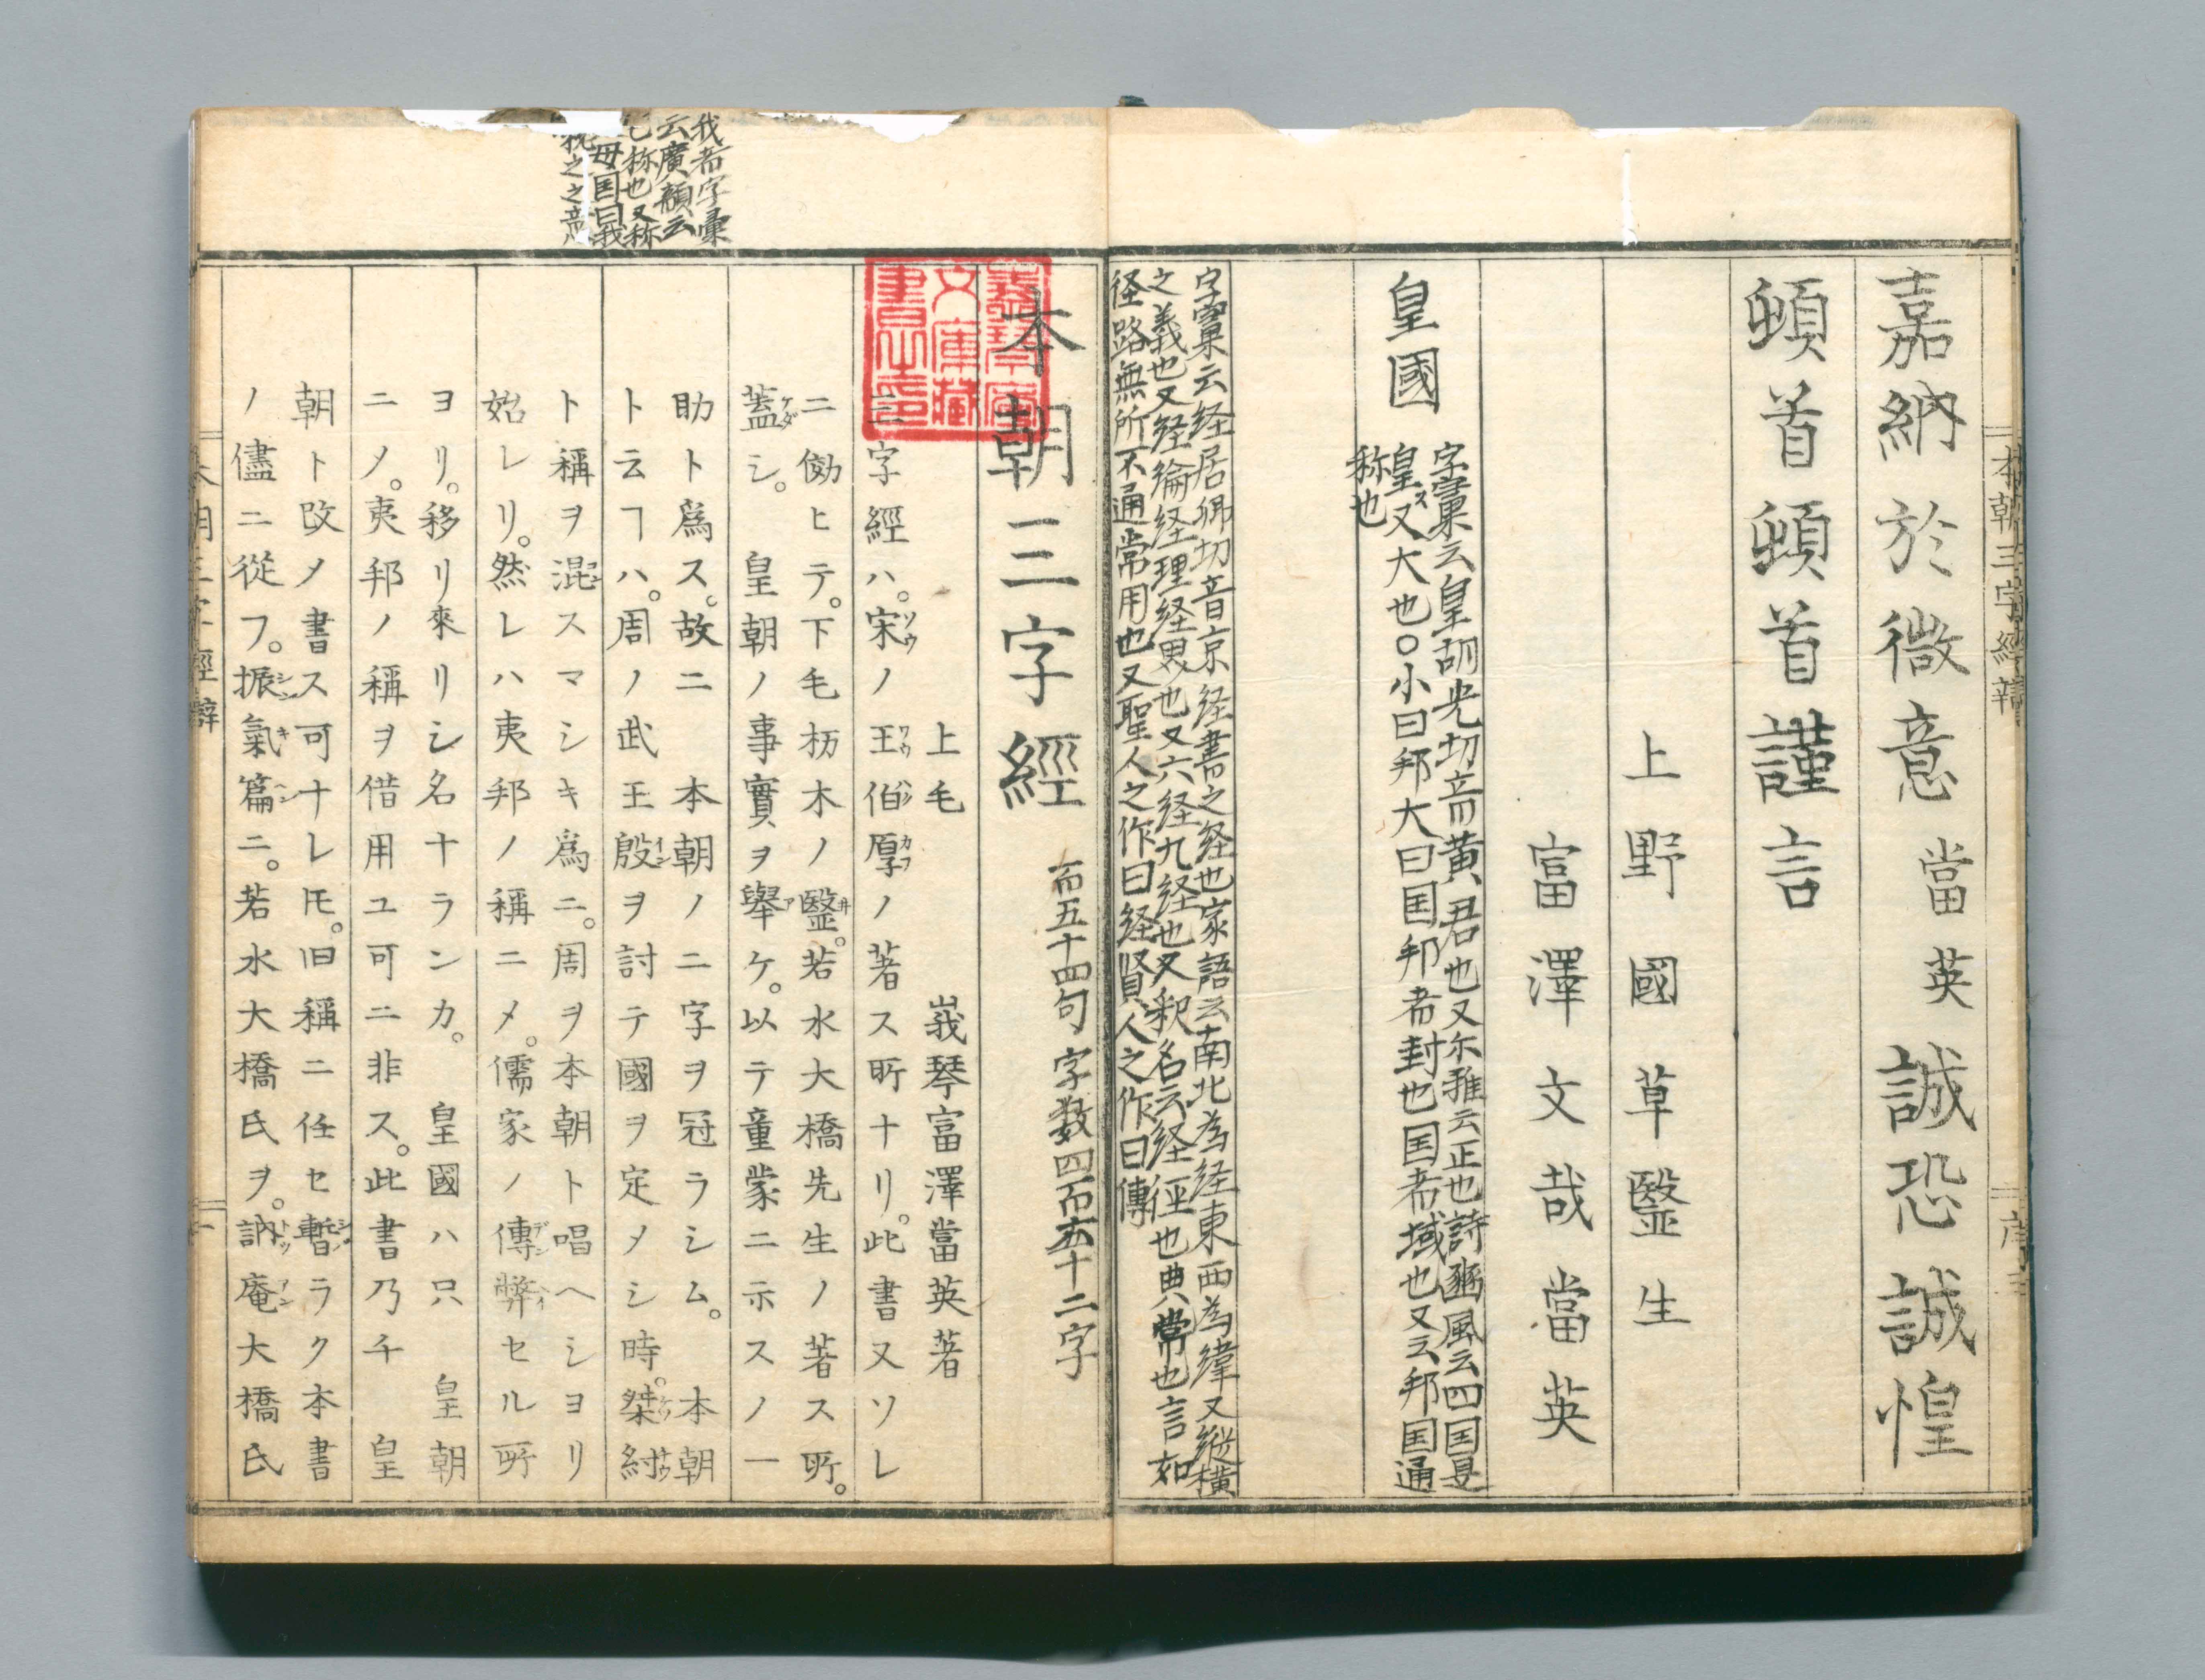 嘉納於微意當英誠恐誠惶
頓首頓首謹言
上野國草毉生
富澤文哉當英
字彙云皇胡光切音黄君也又尓雅云正也詩豳風云四国是
皇國
皇ス又大也○小曰邦大曰国邦者封也国者域也又云邦国通
称也
字彙云経居卿切音京経書之経也家語云南北為経東西為緯又縦横
之義也又経綸経理経界也又六経九経也又釈名云経径也典常也言如
径路無所不通常用也又聖人之作曰経賢人之作曰傳
本朝三字經辯
序
我者字彙
云廣韻云
称也又称
母国曰我
本朝三字經
百五十四句 字数四百五十二字
上毛 峩琴富澤當英著
三字經ハ。宋ソウノ王ワウ伯ハク厚カフノ著ス所ナリ。此書又ソレ
ニ傚ヒテ。下毛枥木ノ毉井。若水大橋先生ノ著ス所。
蓋ケダシ。 皇朝ノ事實ヲ舉アケ。以テ童蒙ニ示スノ一
助ト爲ス。故ニ 本朝ノ二字ヲ冠ラシム。 本朝
ト云ヿハ。周ノ武王殷インヲ討テ國ヲ定メシ時。桀ケツ紂チウ
ト稱ヲ混コンスマシキ爲ニ。周ヲ本朝ト唱ヘシヨリ
始レリ。然レハ夷邦ノ稱ニメ。儒家ノ傳デン弊ヘイセル所
ヨリ。移リ來リシ名ナランカ。 皇國ハ只 皇朝
ニノ。夷邦ノ稱ヲ借用ユ可ニ非ス。此書乃チ 皇
朝ト改メ書ス可ナレ𪜈。旧稱ニ任セ暫シハラク本書
ノ儘ニ從フ。振シン氣キ篇ヘンニ。若水大橋氏ヲ。訥トツ庵アン大橋氏
本朝三字經辯
一